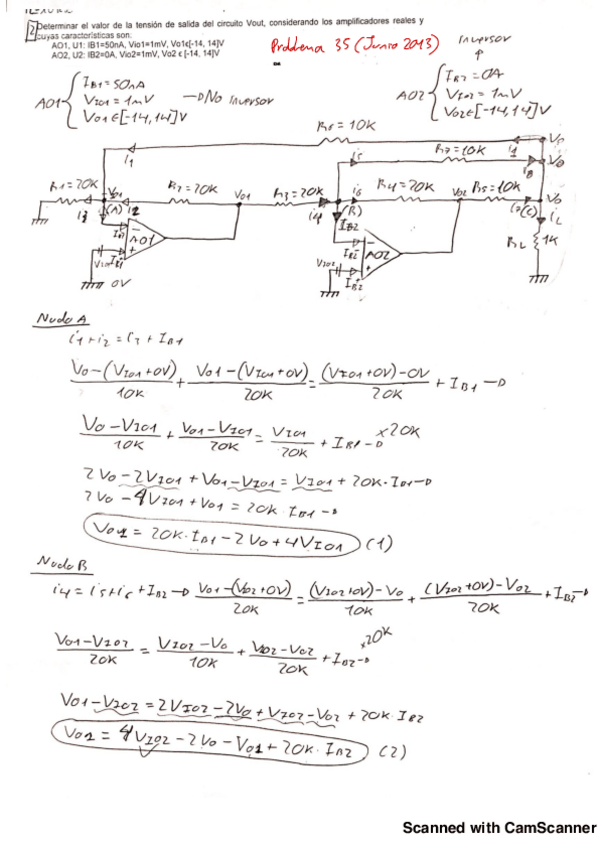 2 Determinar el valor de la tensión de salida del circuito Vout, considerando los amplificadores reales y
cuyas características son:
AO1, U1: IB1=50nA, Vio1=1mV, Vo1ε[-14, 14]V
AO2, U2: IB2=0A, Vio2=1mV, Vo2 ε [-14, 14]V
Problema 35 (Junio 2013)
Inversor
AO1 { IB1 = 50nA
VIO1 = 1mV → No Inversor
VO1 ∈ [-14, 14] V
AO2 { IB2 = 0A
VIO2 = 1mV
VO2 ∈ [-14, 14] V
R6 = 10K
i1
i1
Vo
R7 = 10K
i5
i8
Vo
R1 = 20K
R2 = 20K
VO1
R3 = 20K
i6
R4 = 20K
VO2
R5 = 10K
Vo
i3
(A)
i2
i4
(B)
IB2
i7
(C)
iL
RL
1K
AO1
AO2
VIO2
IB2
0V
Nudo A
i1 + i2 = i3 + IB1
Vo-(VIO1+0V)/10K + VO1-(VIO1+0V)/20K = (VIO1+0V)-0V/20K + IB1 →
Vo-VIO1/10K + VO1-VIO1/20K = VIO1/20K + IB1 → x20K
2Vo - 2VIO1 + VO1 - VIO1 = VIO1 + 20K · IB1 →
2Vo - 4VIO1 + VO1 = 20K · IB1 →
VO1 = 20K · IB1 - 2Vo + 4VIO1 (1)
Nudo B
i4 = i5 + i6 + IB2 → VO1-(VO2+0V)/20K = (VIO2+0V)-Vo/10K + (VIO2+0V)-VO2/20K + IB2 →
VO1-VIO2/20K = VIO2-Vo/10K + VIO2-VO2/20K + IB2 → x20K
VO1 - VIO2 = 2VIO2 - 2Vo + VIO2 - VO2 + 20K · IB2
VO2 = 4VIO2 - 2Vo - VO1 + 20K · IB2 (2)
Scanned with CamScanner